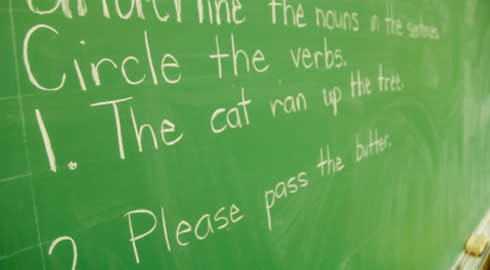 Underline the nouns in the sentences
Circle the verbs.
1. The cat ran up the tree.
2. Please pass the butter.